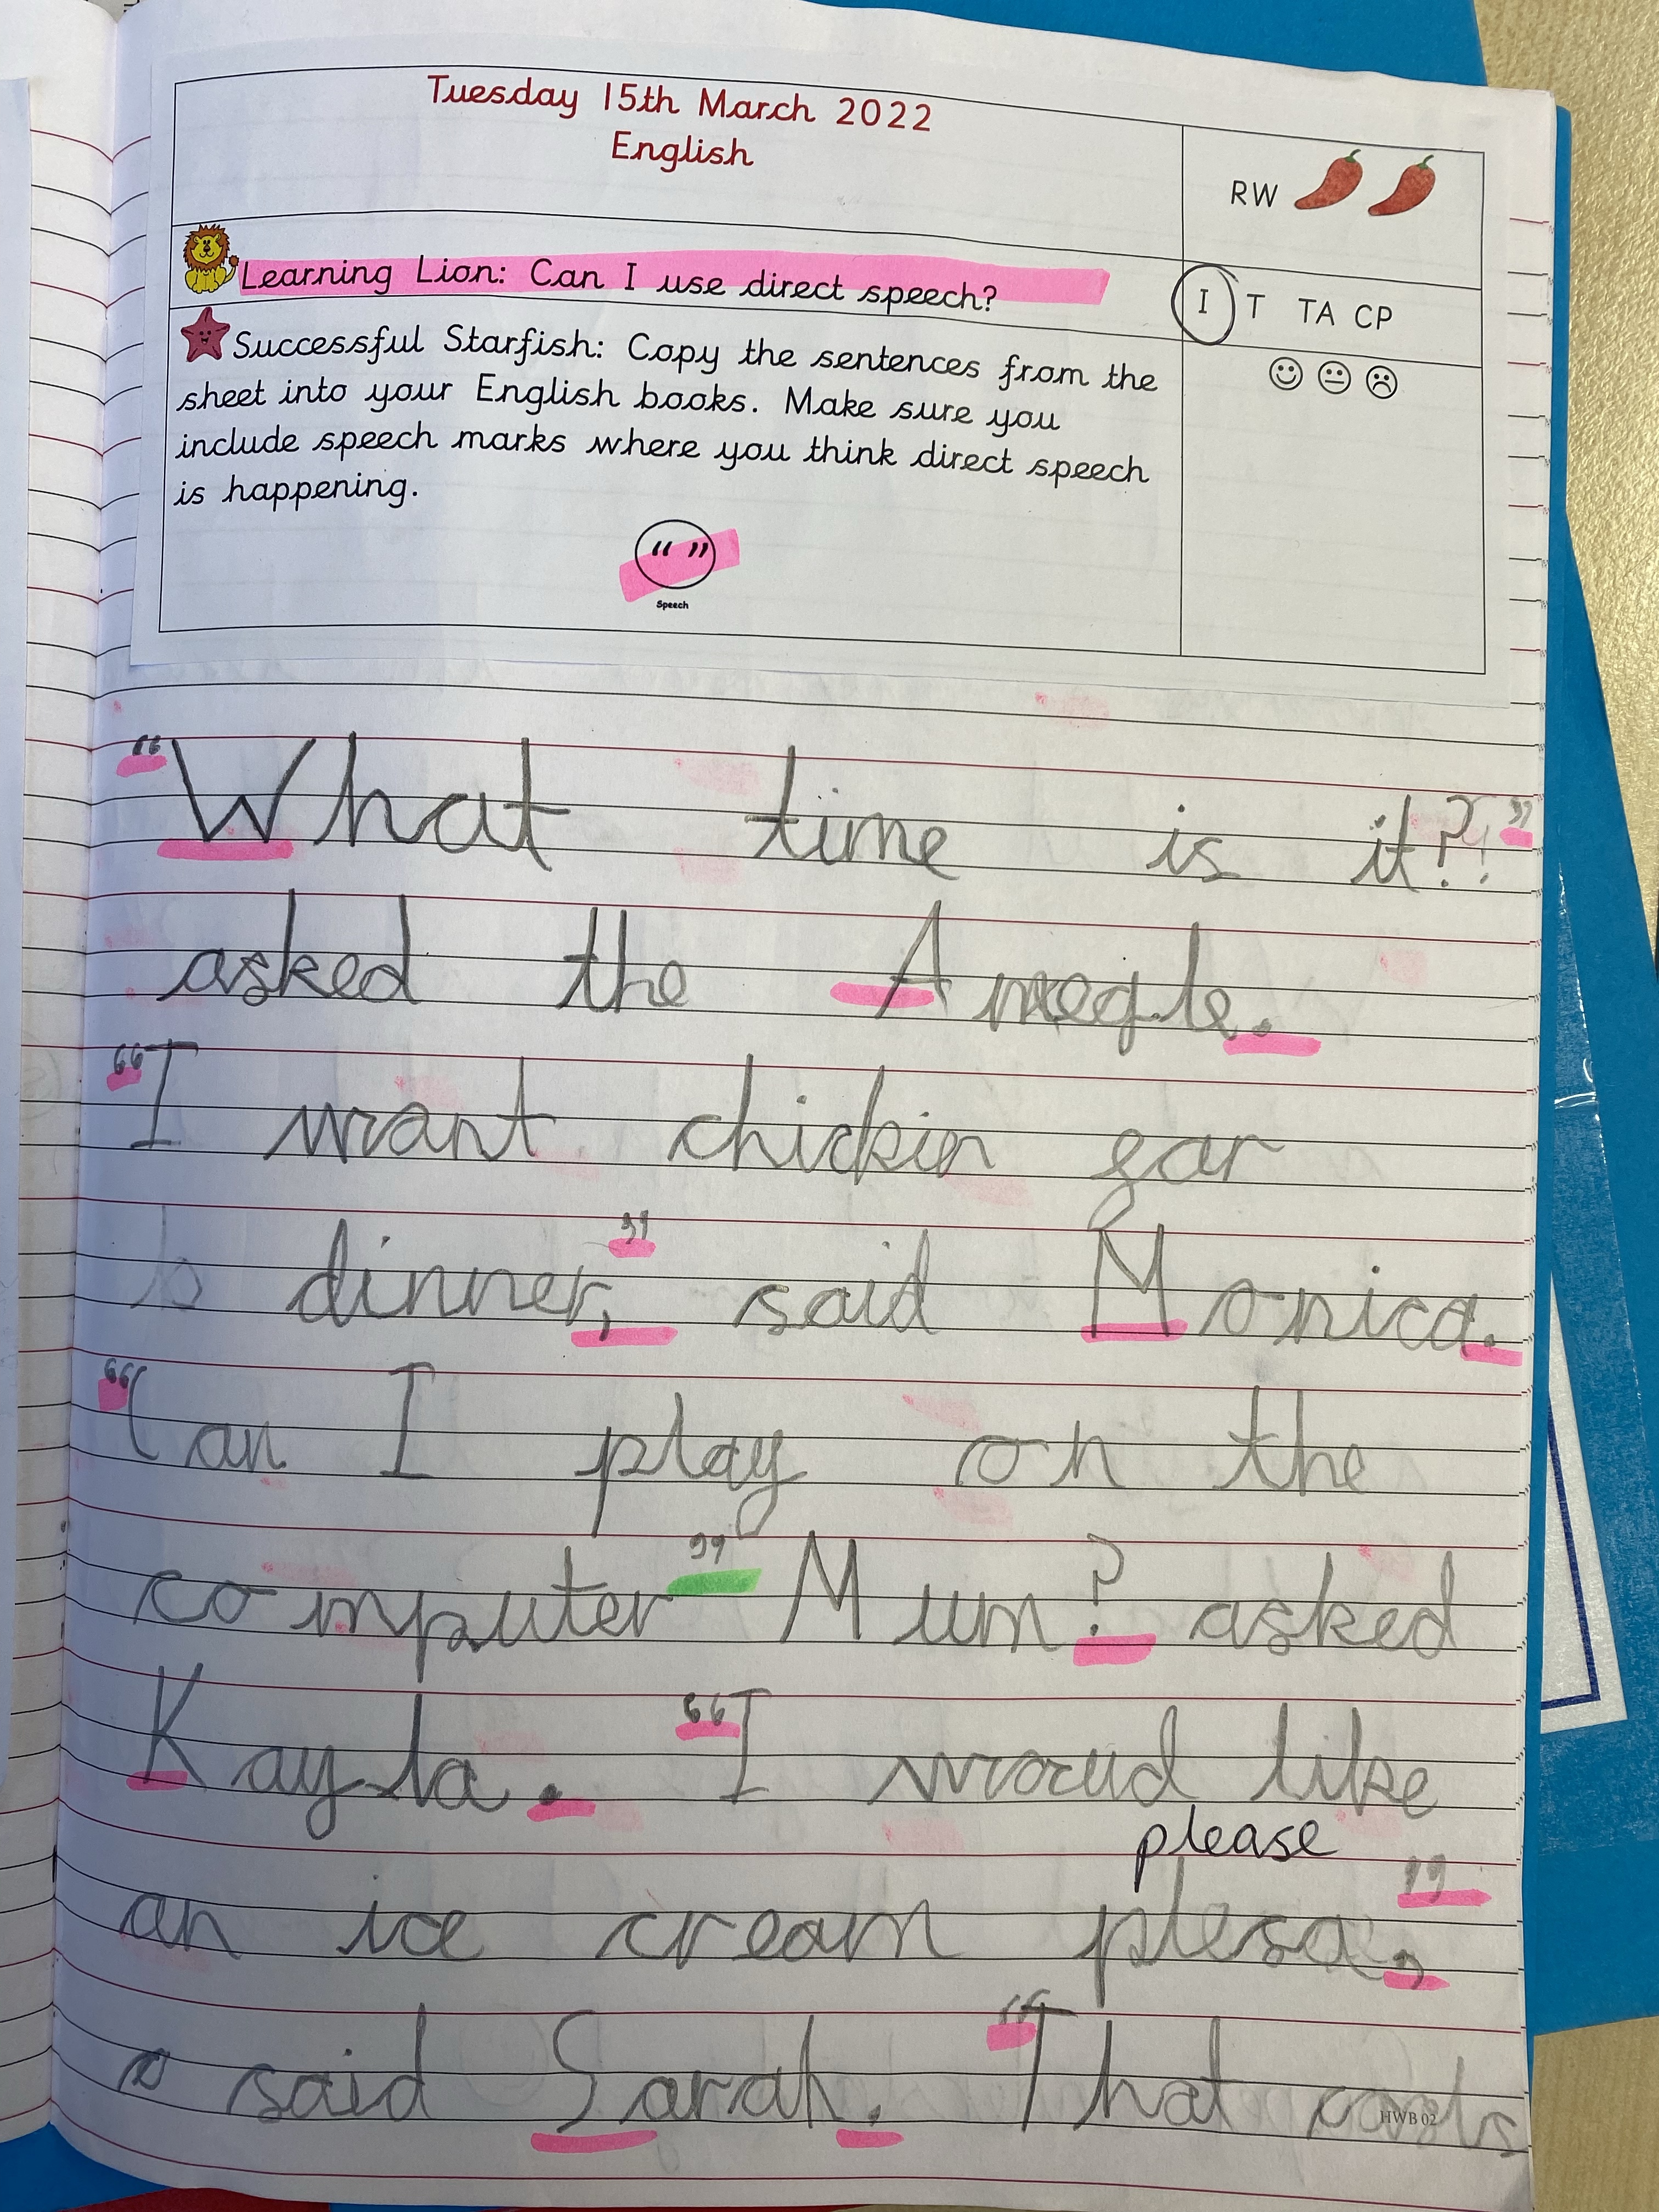 Tuesday 15th March 2022
English
RW
Learning Lion: Can I use direct speech?
I T TA CP
Successful Starfish: Copy the sentences from the
sheet into your English books. Make sure you
include speech marks where you think direct speech
is happening.
“ ”
Speech
“What time is it?!”
asked the
“I want chickin gor
dinner,” said Monica.
“Can I play on the
computer” Mum? asked
Kayla. “I woud like
please
an ice cream plesa,”
said Sarah. “That costs
HWB 02